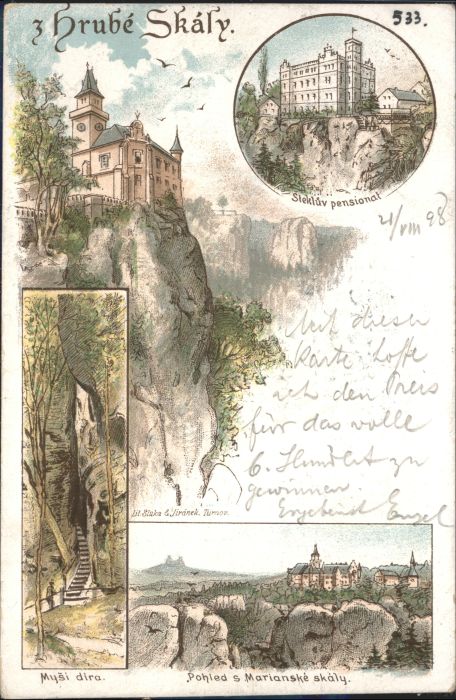 z Hrubé Skály.
533.
Steklův pensionat
21/VIII 98
Mit dieser
Karte hoffe
ich den Preis
für das volle
6. Hundert zu
gewinnen
Ergebenst Engel
Lit. Sluka & Jiránek, Turnov.
Myší díra.
Pohled s Marianské skály.